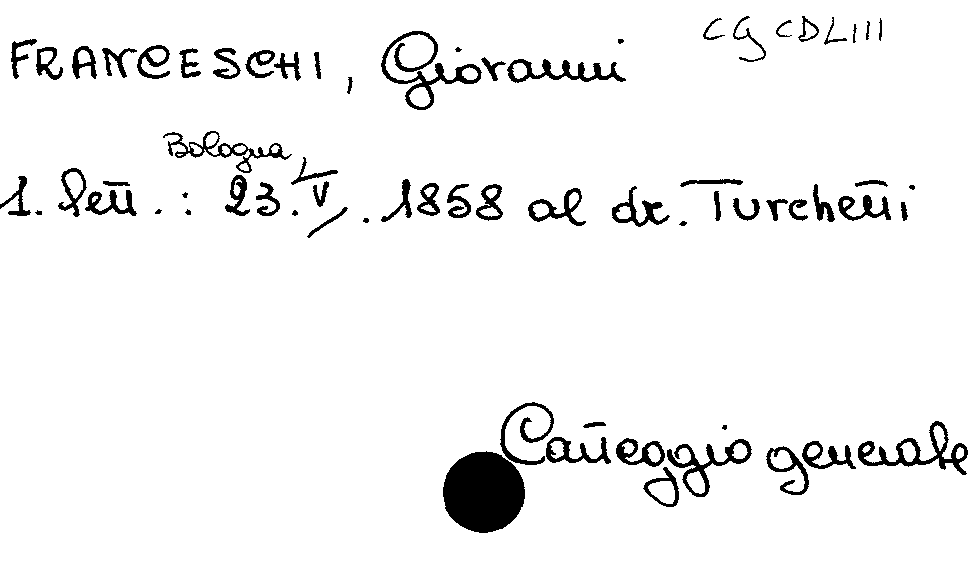 FRANCESCHI, Giovanni
CG CDLIII
Bologna,
1. lett.: 23.V.1858 al dr. Turchetti
Carteggio generale